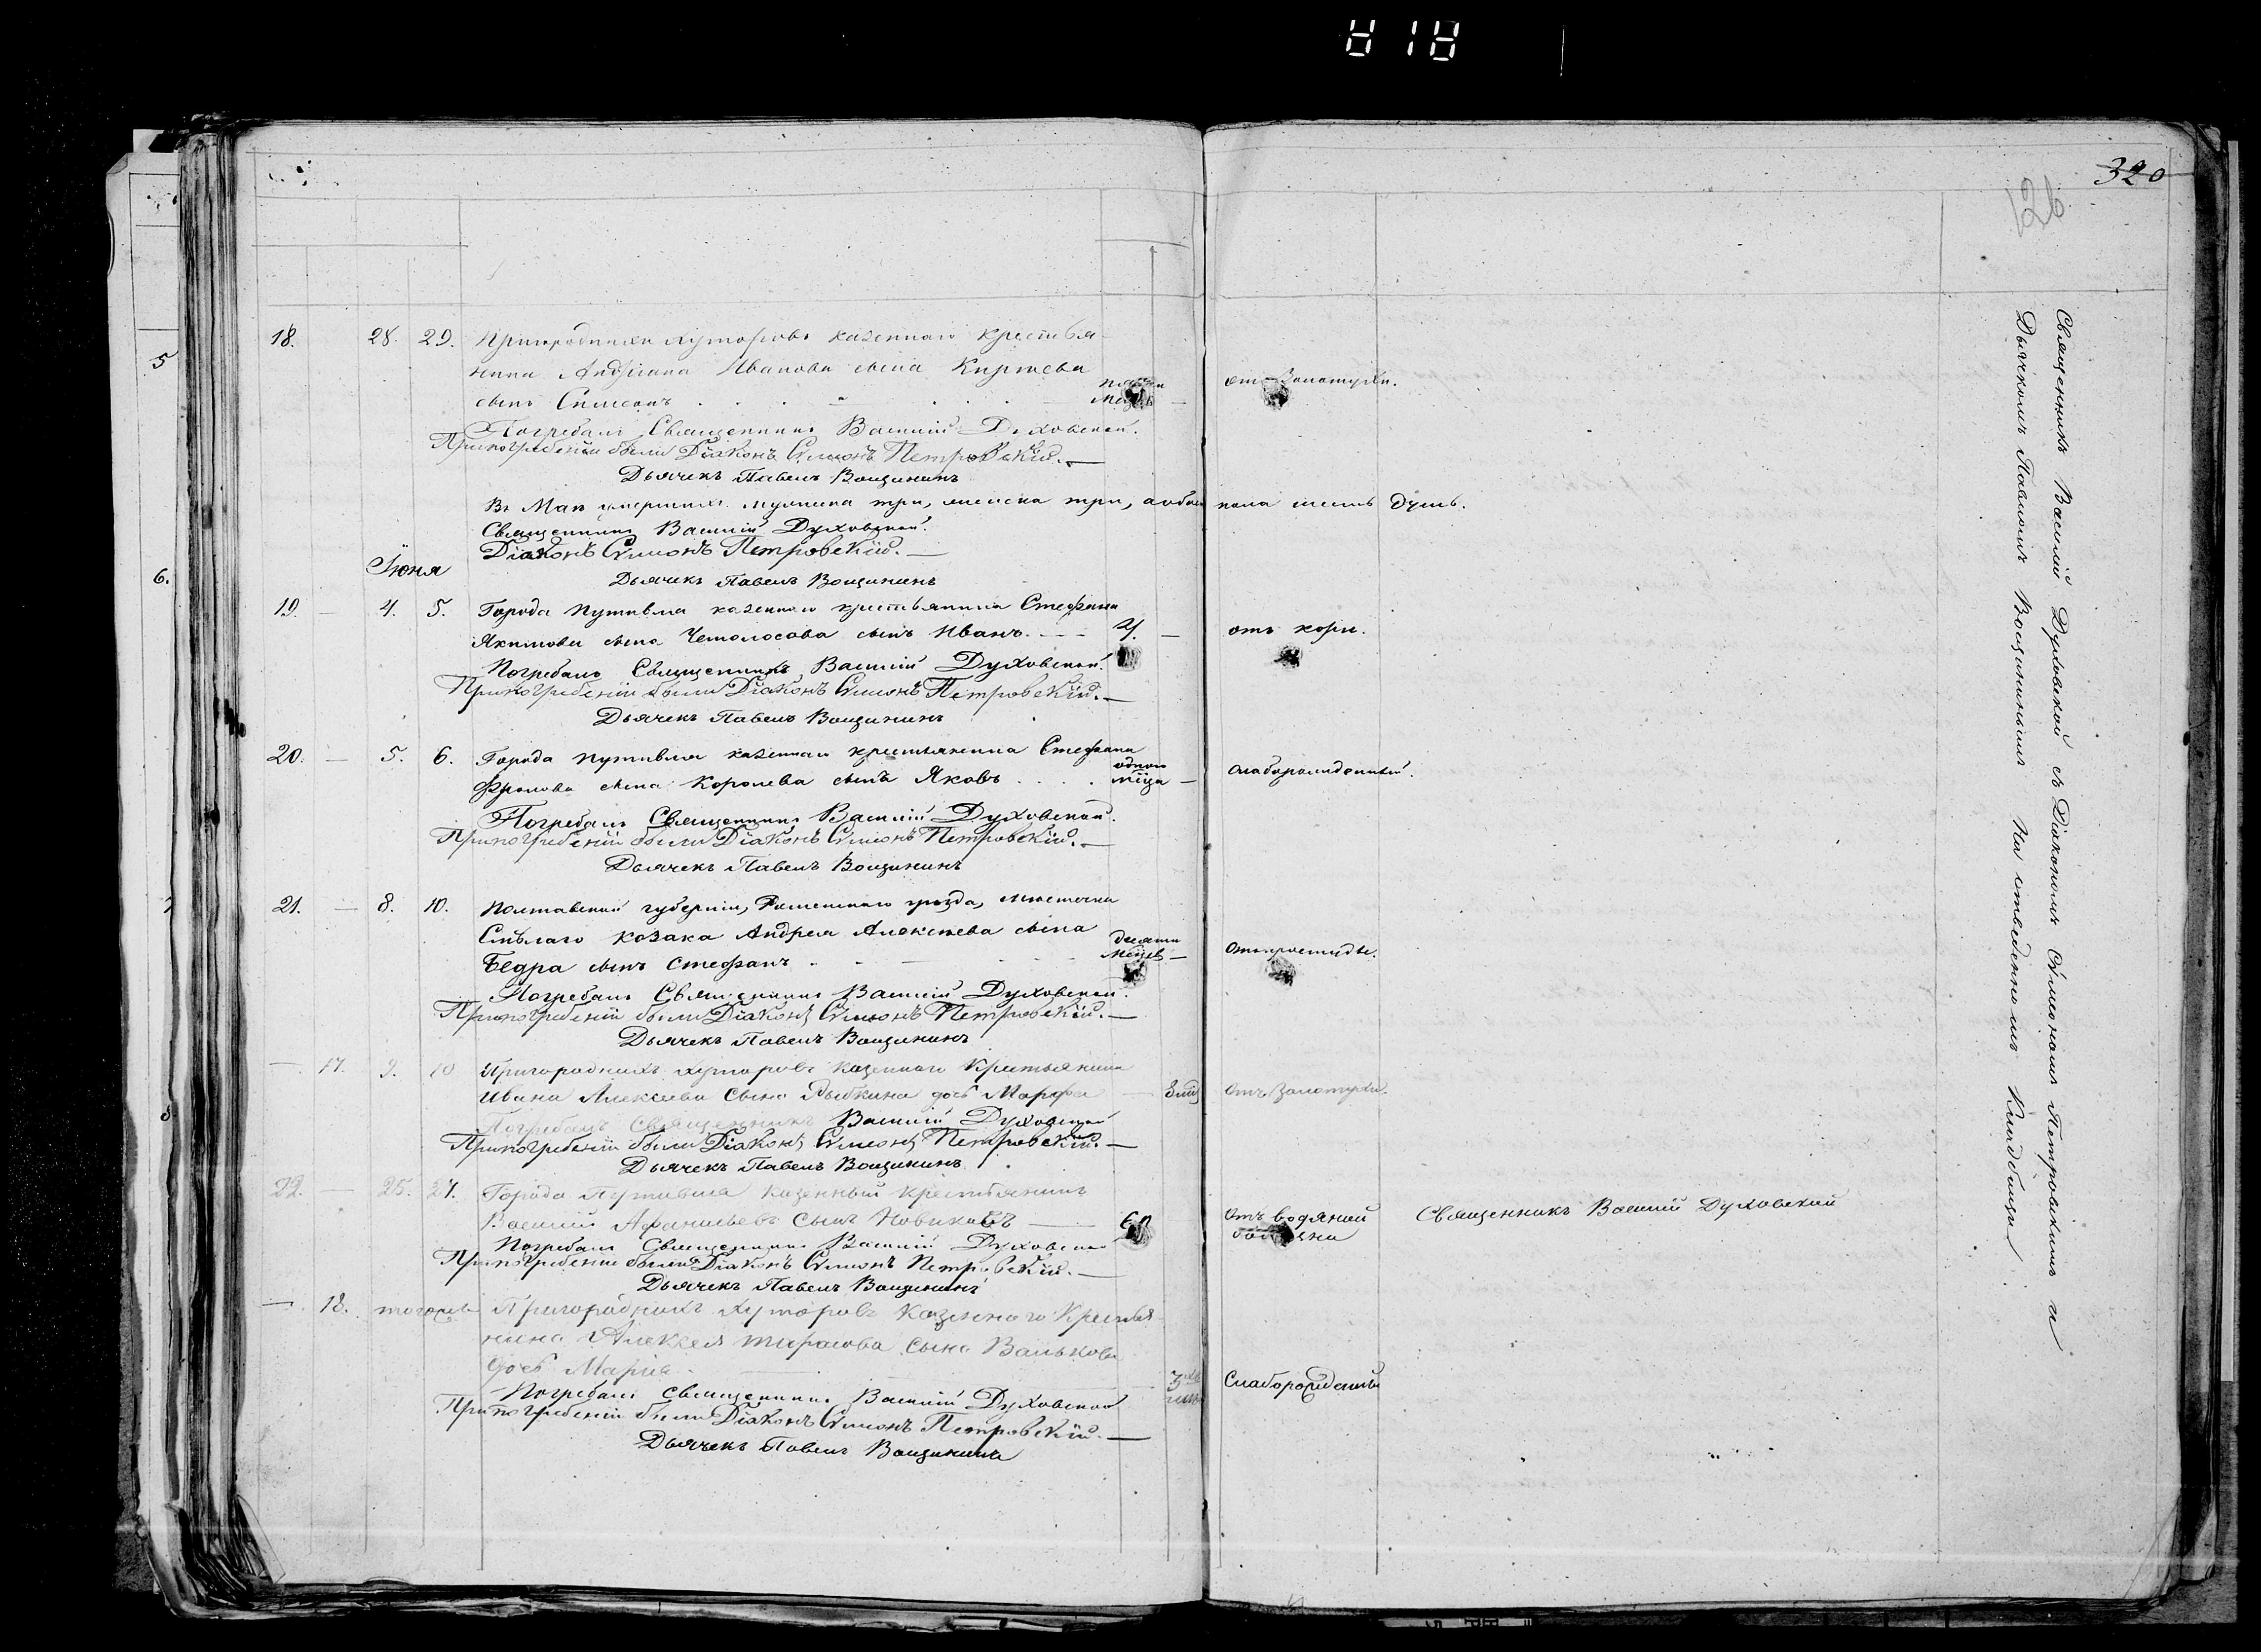 320
126
18. 28. 29. Пригородныхъ хуторовъ казеннаго крестья-
нина Андріана Иванова сына Киржева
сынъ Симеонъ отъ Золотухи.
Погребалъ Священникъ Василій Духовской.
При погребеніи были Діаконъ Сѵмеонъ Петровскій.
Дьячекъ Павелъ Вощининъ
Въ Маѣ умершихъ мужеска три, женска три, а обоего пола шесть душъ.
Священникъ Василій Духовской.
Діаконъ Сѵмеонъ Петровскій.
Дьячекъ Павелъ Вощининъ
Іюня
19. — 4. 5. Города Путивля казеннаго крестьянина Стефана
Якимова сына Чемолосова сынъ Иванъ. — отъ кори.
Погребалъ Священникъ Василій Духовской.
При погребеніи были Діаконъ Сѵмеонъ Петровскій.
Дьячекъ Павелъ Вощининъ
20. — 5. 6. Города Путивля казеннаго крестьянина Стефана
Фролова сына Королева сынъ Яковъ одного мѣца — слаборожденный.
Погребалъ Священникъ Василій Духовской.
При погребеніи были Діаконъ Сѵмеонъ Петровскій.
Дьячекъ Павелъ Вощининъ
21. — 8. 10. Полтавской губерніи, Роменскаго уѣзда, мѣстечка
Смѣлаго козака Андрея Алексѣева сына
Бедра сынъ Стефанъ десяти мѣцев —
Погребалъ Священникъ Василій Духовской.
При погребеніи были Діаконъ Сѵмеонъ Петровскій.
Дьячекъ Павелъ Вощининъ
— 17. 9. 10 Пригородныхъ хуторовъ казеннаго крестьянина
Ивана Алексѣева сына Рыбкина дочь Марфа — Отъ Золотухи.
Погребалъ Священникъ Василій Духовской
При погребеніи были Діаконъ Сѵмеонъ Петровскій.
Дьячекъ Павелъ Вощининъ
22. — 25. 27. Города Путивля казенный крестьянинъ
Василій Афанасьевъ сынъ Новиковъ — 60 Отъ водяной
Священникъ Василій Духовской
Погребалъ Священникъ Василій Духовской
При погребеніи были Діаконъ Сѵмеонъ Петровскій.
Дьячекъ Павелъ Вощининъ
— 18. Пригородныхъ хуторовъ казеннаго крестья-
нина Алексея Тарасова сына Валькова
дочь Марія Слаборожденна
Погребалъ Священникъ Василій Духовской
При погребеніи были Діаконъ Сѵмеонъ Петровскій.
Дьячекъ Павелъ Вощининъ
Священникъ Василій Духовской съ Діакономъ Сѵмеономъ Петровскимъ и
Дьячкомъ Павломъ Вощининымъ